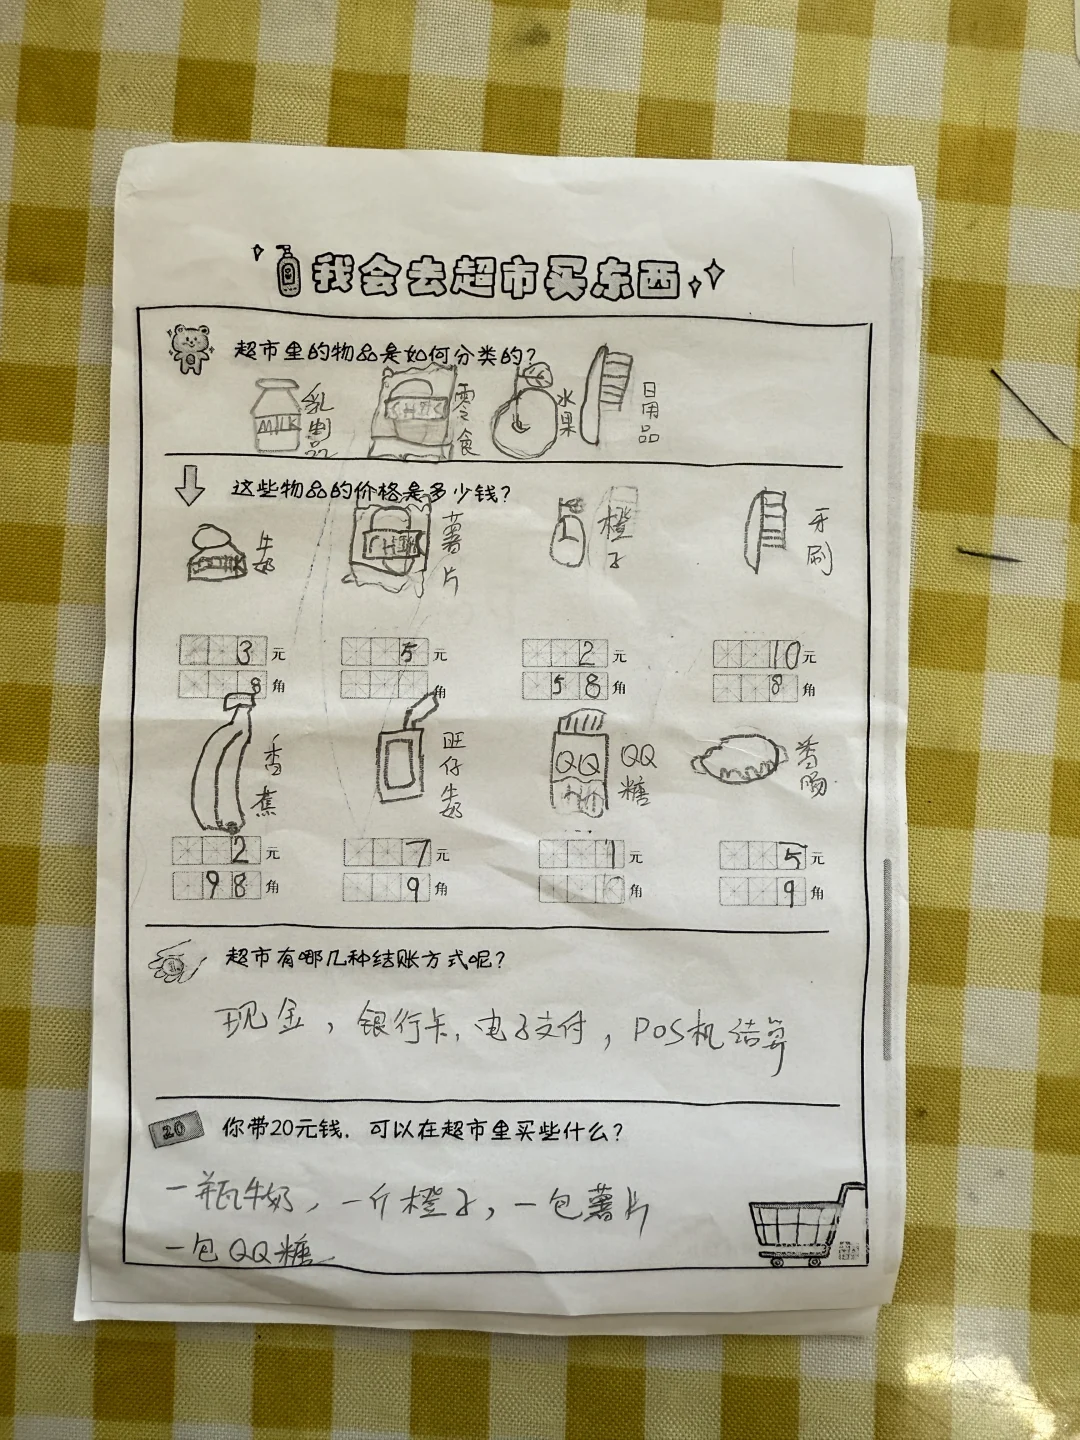 我会去超市买东西
超市里的物品是如何分类的？
MILK 乳制品 零食 水果 日用品
这些物品的价格是多少钱？
牛奶 薯片 橙子 牙刷
3元 5元 2元 10元
8角 角 58角 8角
香蕉 旺仔牛奶 QQ QQ糖 香肠
2元 7元 1元 5元
98角 9角 角 9角
超市有哪几种结账方式呢？
现金，银行卡，电子支付，POS机结算
20 你带20元钱，可以在超市里买些什么？
一瓶牛奶，一斤橙子，一包薯片
一包QQ糖